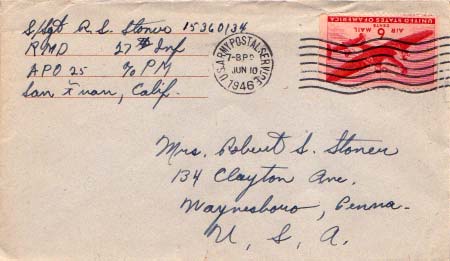 S/Sgt R. S. Stoner 15360134
RMD 27th Inf
APO 25 % PM
San Fran, Calif.
U.S. ARMY POSTAL SERVICE
7-8 PM
JUN 10
1946
UNITED STATES OF AMERICA
AIR MAIL
6¢
Mrs. Robert S. Stoner
134 Clayton Ave.
Waynesboro, Penna.
U. S. A.